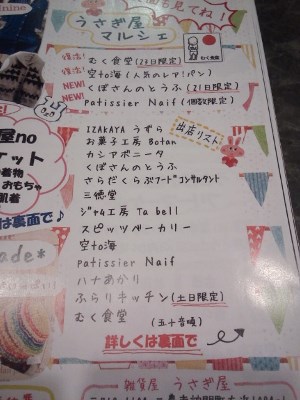 も見てね!
うさぎ屋
マルシェ
復活! むく食堂(24日限定)
復活! 空to海(人気のレア!パン)
NEW! くぼさんのとうふ(21日限定)
NEW! Patissier Naif(個数限定)
むく食堂
出店リスト
IZAKAYA うずら
お菓子工房 Botan
カシアボニータ
くぼさんのとうふ
さらだくらぶフードコンサルタント
三徳堂
ジャム工房 Ta bell
スピッツベーカリー
空to海
Patissier Naif
ハナあかり
ふらりキッチン(土日限定)
むく食堂
(五十音順)
詳しくは裏面で
屋no
ケット
着物
おもちゃ
肌着
は裏面で♪
ade*
雑貨屋 うさぎ屋